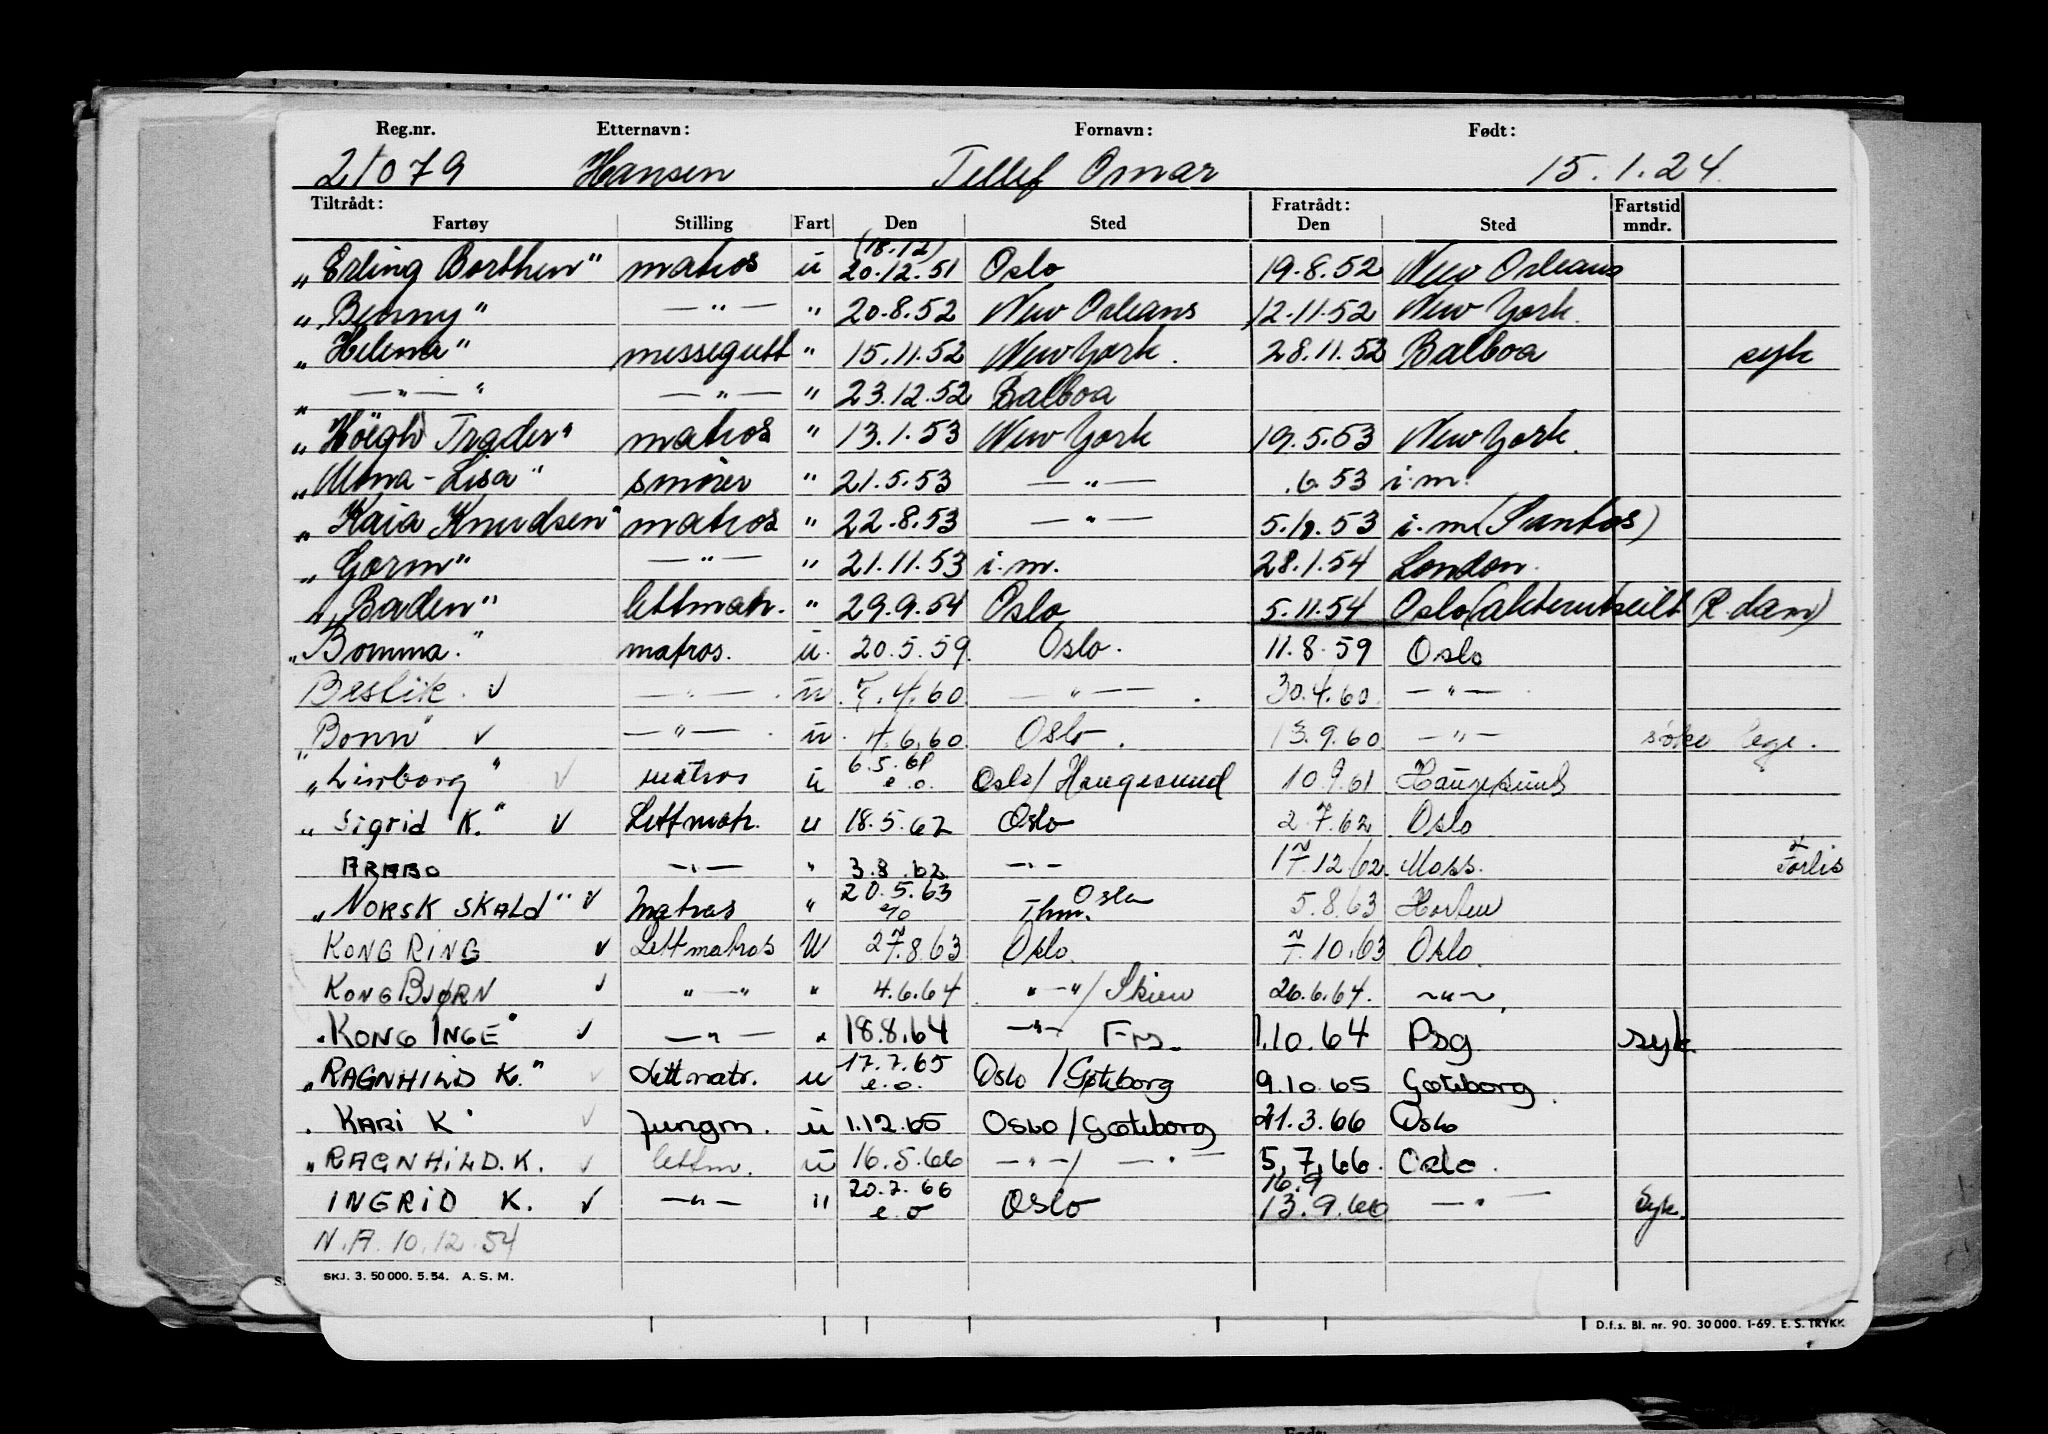 Reg.nr. Etternavn: Fornavn: Født:
21079 Hansen Tellef Omar 15.1.24.
Tiltrådt: Fratrådt: Fartstid
Fartøy Stilling Fart Den Sted Den Sted mndr.
(18.12)
„Erling Borthen" matros u 20.12.51 Oslo 19.8.52 New Orleans
„Benny" —"— " 20.8.52 New Orleans 12.11.52 New York.
„Helena" messegutt " 15.11.52 New York. 28.11.52 Balboa syk
„ —"— " —"— " 23.12.52 Balboa
„Höegh Trader" matros " 13.1.53 New York 19.5.53 New York.
„Mona-Lisa" smører " 21.5.53 —"— .6.53 i.m.
„Kaia Knudsen" matros " 22.8.53 —"— 53 i.m. (Santos)
„Gorm" —"— " 21.11.53 i.m. 28.1.54 London.
„Baden" lettmatr. " 29.9.54 Oslo 5.11.54 Oslo (akterutseilt R.dam)
„Bomma." matros. u. 20.5.59. Oslo. 11.8.59 Oslo
Bestik. ✓ —"— . u. 7.4.60 —"— . 30.4.60. —"—
„Bonn" ✓ —"— . u. 6.60 Oslo. 13.9.60 —"— søke lege.
„Linborg" ✓ matros u 6.5.61 e.o. Oslo/Haugesund 10.9.61 Haugesund
„Sigrid K." ✓ Lettmatr. u 18.5.62 Oslo 2.7.62 Oslo
ARABO —"— " 3.8.62 —"— 17.12.62. Moss. Forlis
„NORSK SKALD" ✓ Matros " 20.5.63 e/o Oslo Thm. 5.8.63 Horten
KONG RING ✓ Lettmatros U 27.8.63 Oslo. 7.10.63 Oslo.
KONG BJØRN ✓ "—" " 4.6.64 "—"/Skien 26.6.64. —"—
„KONG INGE" ✓ —"— " 18.8.64 —"— Frs. 1.10.64 Psg syk.
„RAGNHILD K." ✓ Lettmatr. u 17.7.65 e.o. Oslo/Gøteborg 9.10.65 Gøteborg.
. KARI K" ✓ Jungm. u 1.12.65 Oslo/Gøteborg 21.3.66 Oslo
„RAGNHILD. K. ✓ lettm. u 16.5.66 —"—/—"— 5.7.66. Oslo.
INGRID K. ✓ —"— " 20.7.66 e.o Oslo 16.9 13.9.66 —"— Syk.
N.A. 10.12.54
SKJ. 3. 50 000. 5.54. A. S. M.
D.f.s. Bl. nr. 90. 30 000. 1-69. E. S. TRYKK